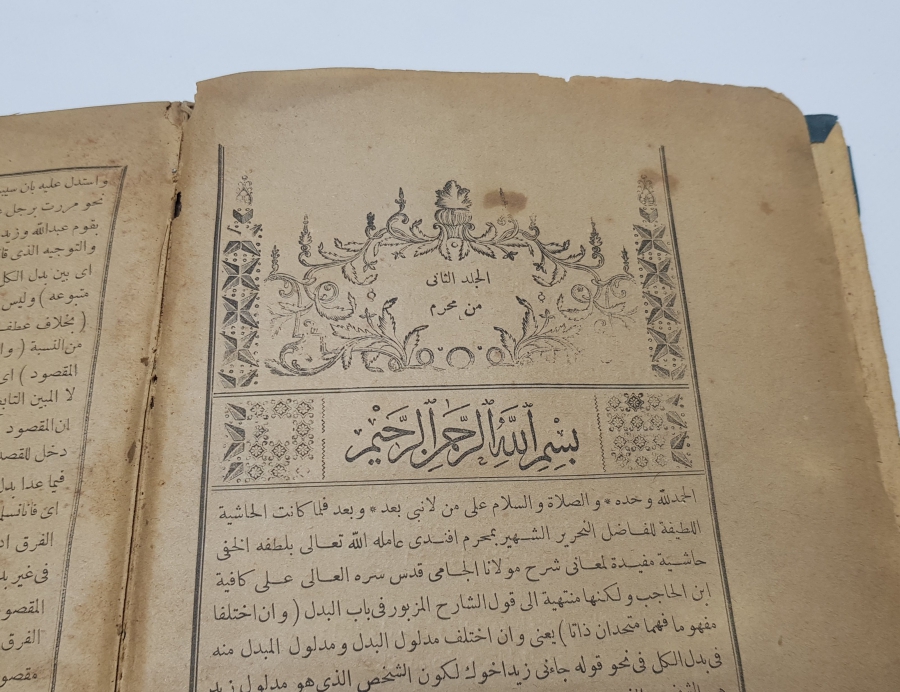 الجلد الثانى
من محرم
بسم الله الرحمن الرحيم
الحمدلله وحده * والصلاة والسلام على من لانبى بعد * وبعد فلما كانت الحاشية
اللطيفة للفاضل النحرير الشهير بمحرم افندى عامله الله تعالى بلطفه الخفى
حاشية مفيدة لمعانى شرح مولانا الجامى قدس سره العالى على كافية
ابن الحاجب ولكنها منتهية الى قول الشارح المزبور فى باب البدل ( وان اختلفا
مفهوما فهما متحدان ذاتا ) يعنى وان اختلف مدلول البدل ومدلول المبدل منه
فى بدل الكل فى نحو قوله جاءنى زيد اخوك لكون الشخص الذى هو مدلول زيد
واستدل عليه بان
نحو مررت برجل
يقوم عبدالله وزيد
والتوجيه الذى
اى بين بدل الكل
متبوعه ) وليس
( بخلاف عطف
من النسبة ( وا
المقصود ) اى
لا المبين التابع
ان المقصود
دخل للقصد
فيما عدا بدل
الفرق
فى غير بد
المقصو
الفرق
مقصو